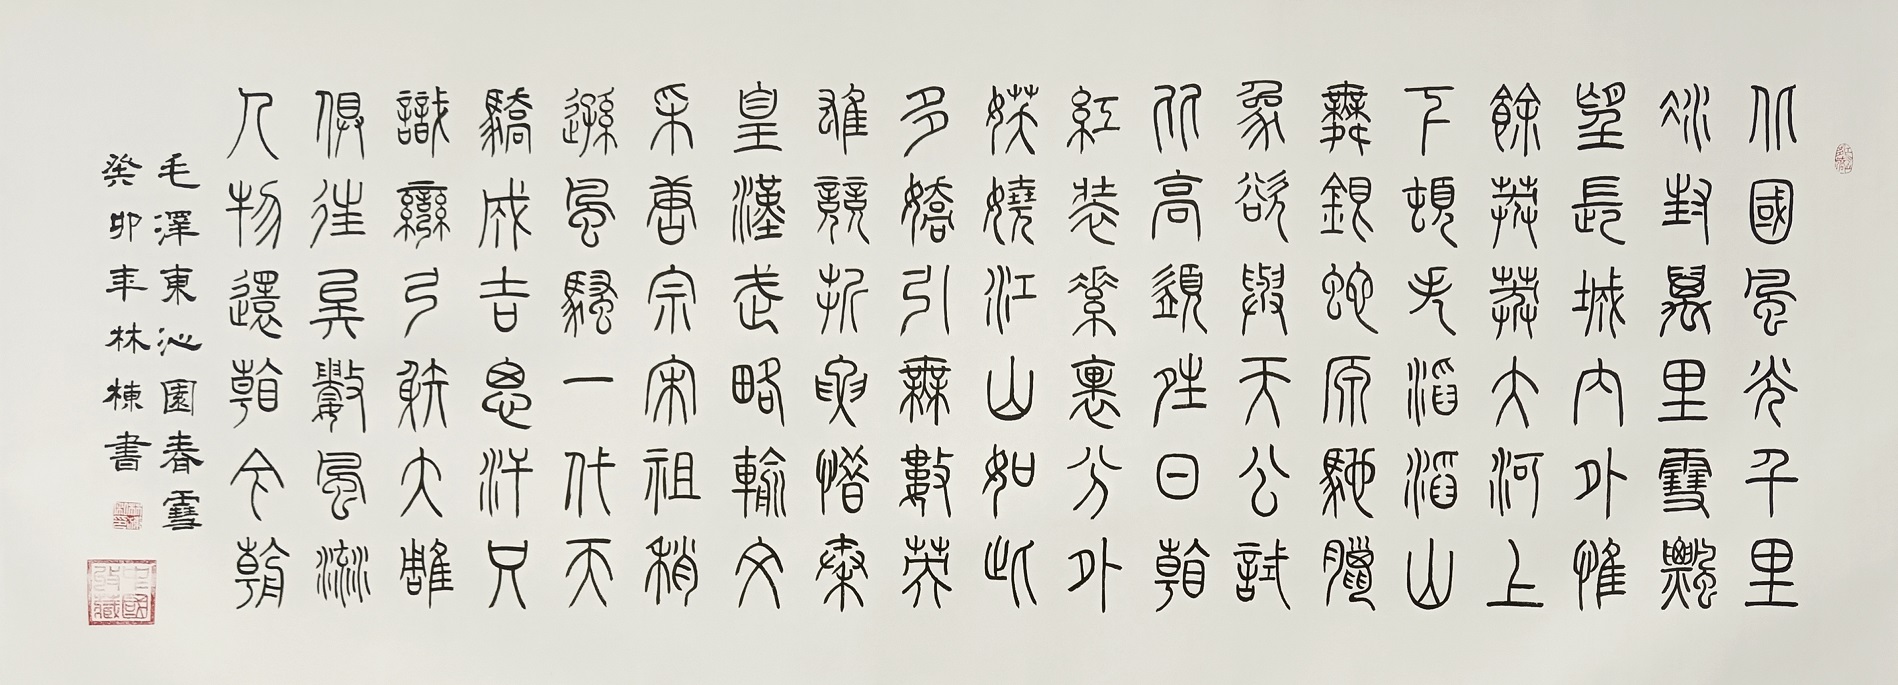 北國風光千里
冰封萬里雪飄
望長城內外惟
餘莽莽大河上
下頓失滔滔山
舞銀蛇原馳臘
象欲與天公試
比高須晴日看
紅裝素裹分外
妖嬈江山如此
多嬌引無數英
雄競折腰惜秦
皇漢武略輸文
采唐宗宋祖稍
遜風騷一代天
驕成吉思汗只
識彎弓射大雕
俱往矣數風流
人物還看今朝
毛澤東沁園春雪
癸卯年林棟書